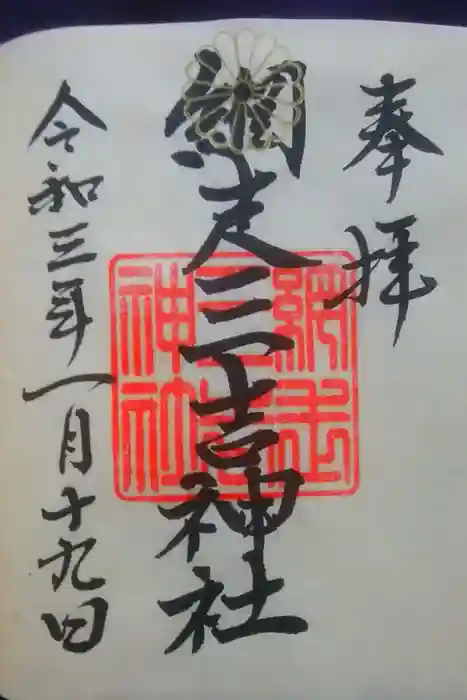 奉拝
網走三吉神社
網走三吉神社
令和三年一月十九日